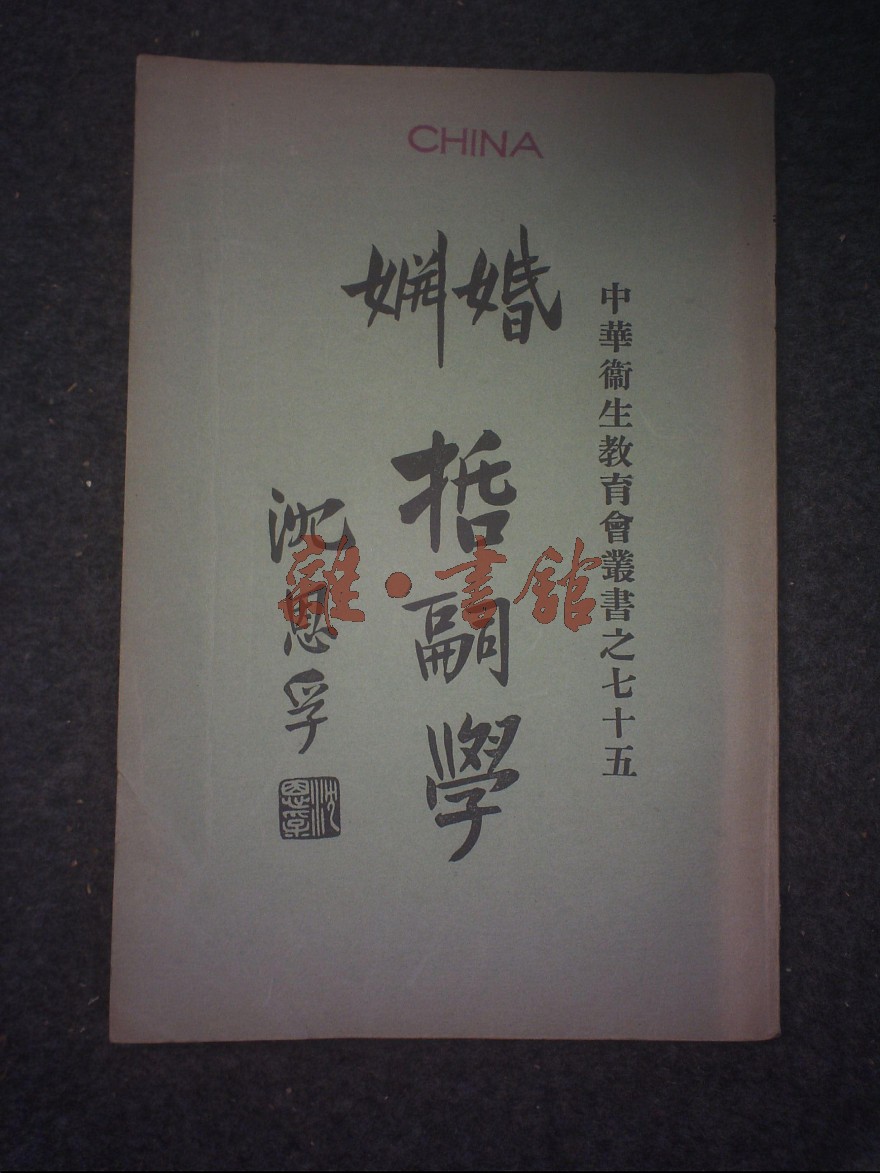 CHINA
中華衞生教育會叢書之七十五
婚婣
哲嗣學
沈恩孚
沈恩孚
雜·書館